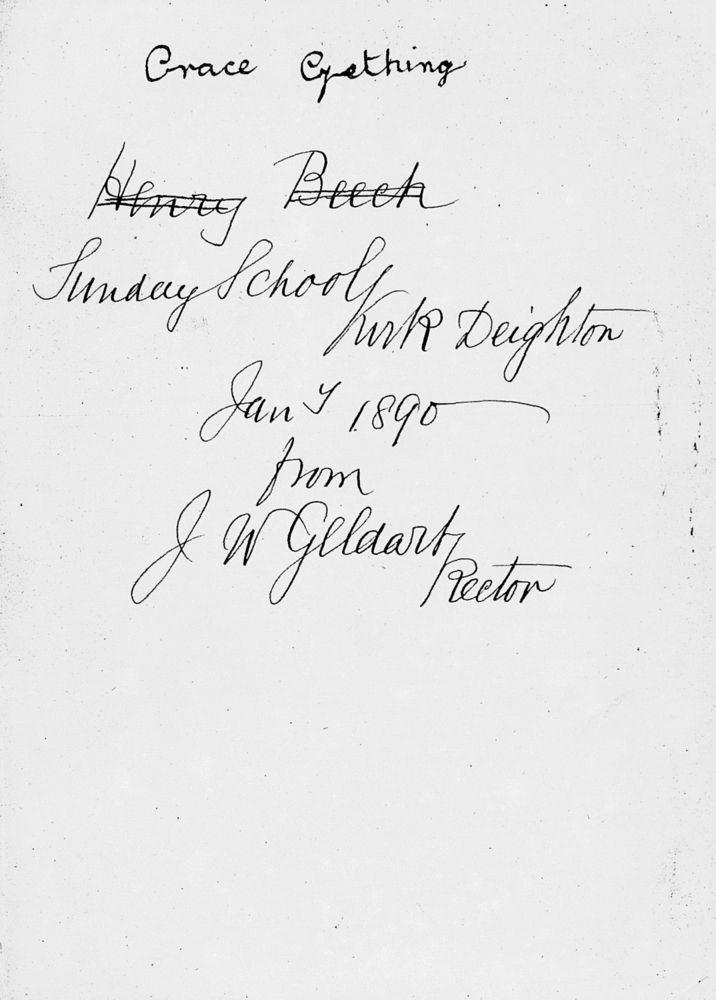 Grace Gething
Henry Beech
Sunday School
Kirk Deighton
Jan y 1890
from
J W Geldart,
Rector